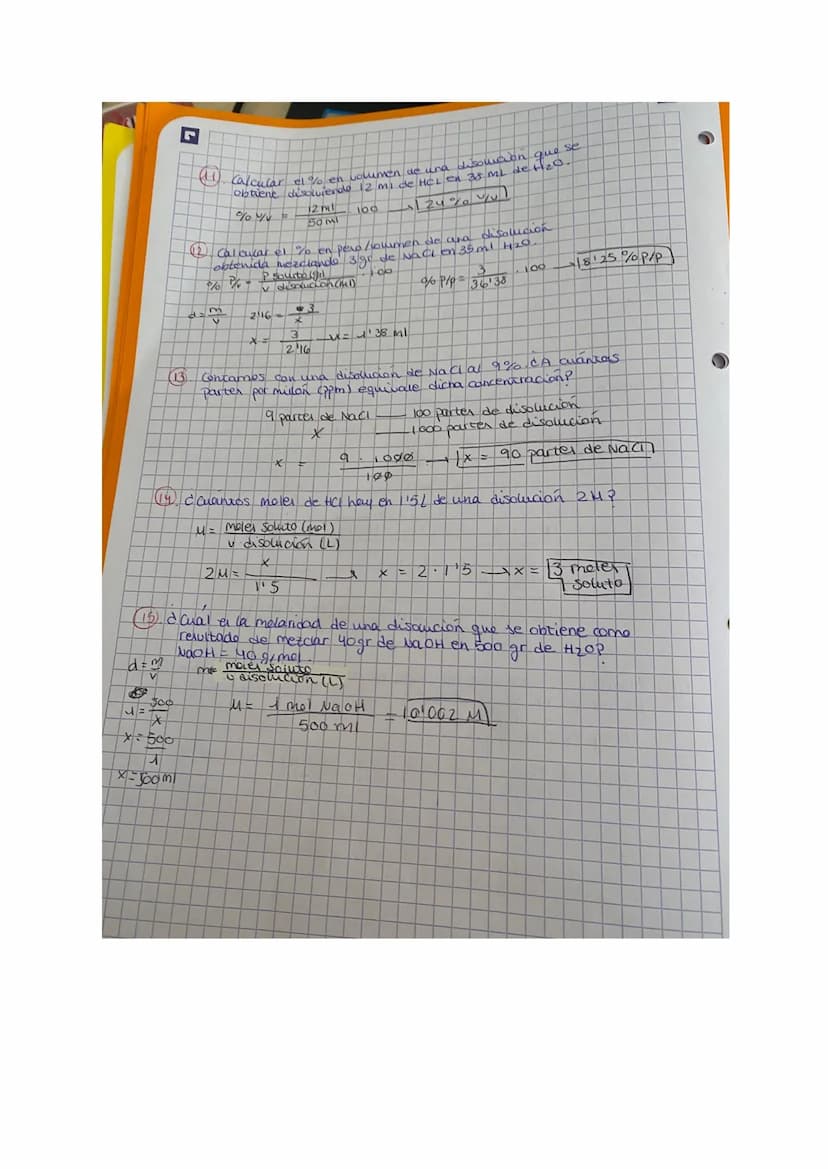 11 Calcular el % en volumen de una disolución que se
obtiene disolviendo 12 ml de HCl en 38 mL de H2O.
% v/v = 12ml / 50 ml · 100 → 24% v/v
12 Calcular el % en peso/volumen de una disolución
obtenida mezclando 3gr de NaCl en 35ml H2O.
% P/v = P soluto (gr) / v disolución (ml) · 100
% P/P = 3 / 36'38 · 100 → 8'25 % P/P
d = m/v 2'16 = 3/x
x = 3 / 2'16 → x = 1'38 ml
13 Contamos con una disolución de NaCl al 9%. ¿A cuántas
partes por millón (ppm) equivale dicha concentración?
9 partes de NaCl — 100 partes de disolución
x — 1000 partes de disolución
x = 9 · 1000 / 100 → x = 90 partes de NaCl
14 ¿Cuántos moles de HCl hay en 1'5L de una disolución 2M?
M = moles soluto (mol) / v disolución (L)
2M = x / 1'5 → x = 2 · 1'5 → x = 3 moles
soluto
15 ¿Cuál es la molaridad de una disolución que se obtiene como
resultado de mezclar 40gr de NaOH en 500 gr de H2O?
NaOH = 40 g/mol
d = m/v
M = moles soluto / v disolución (L)
1 = 500 / x
M = 1 mol NaOH / 500 ml = 0'002 M
x = 500 / 1
x = 500ml